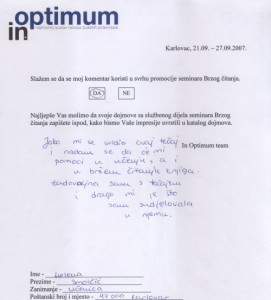 in optimum
Karlovac, 21.09. – 27.09.2007.
Slažem se da se moj komentar koristi u svrhu promocije seminara Brzog čitanja.
DA NE
Najljepše Vas molimo da svoje dojmove sa službenog dijela seminara Brzog
čitanja zapišete ispod, kako bismo Vaše impresije uvrstili u katalog dojmova.
In Optimum team
Jako mi se svidio ovaj tečaj
i nadam se da će mi
pomoći u učenju, a i
u bržem čitanju knjiga.
Zadovoljna sam s tečajem
i drago mi je što
sam sudjelovala
u njemu.
Ime -
Prezime -
Zanimanje - učenica
Poštanski broj i mjesto - 47000 Karlovac